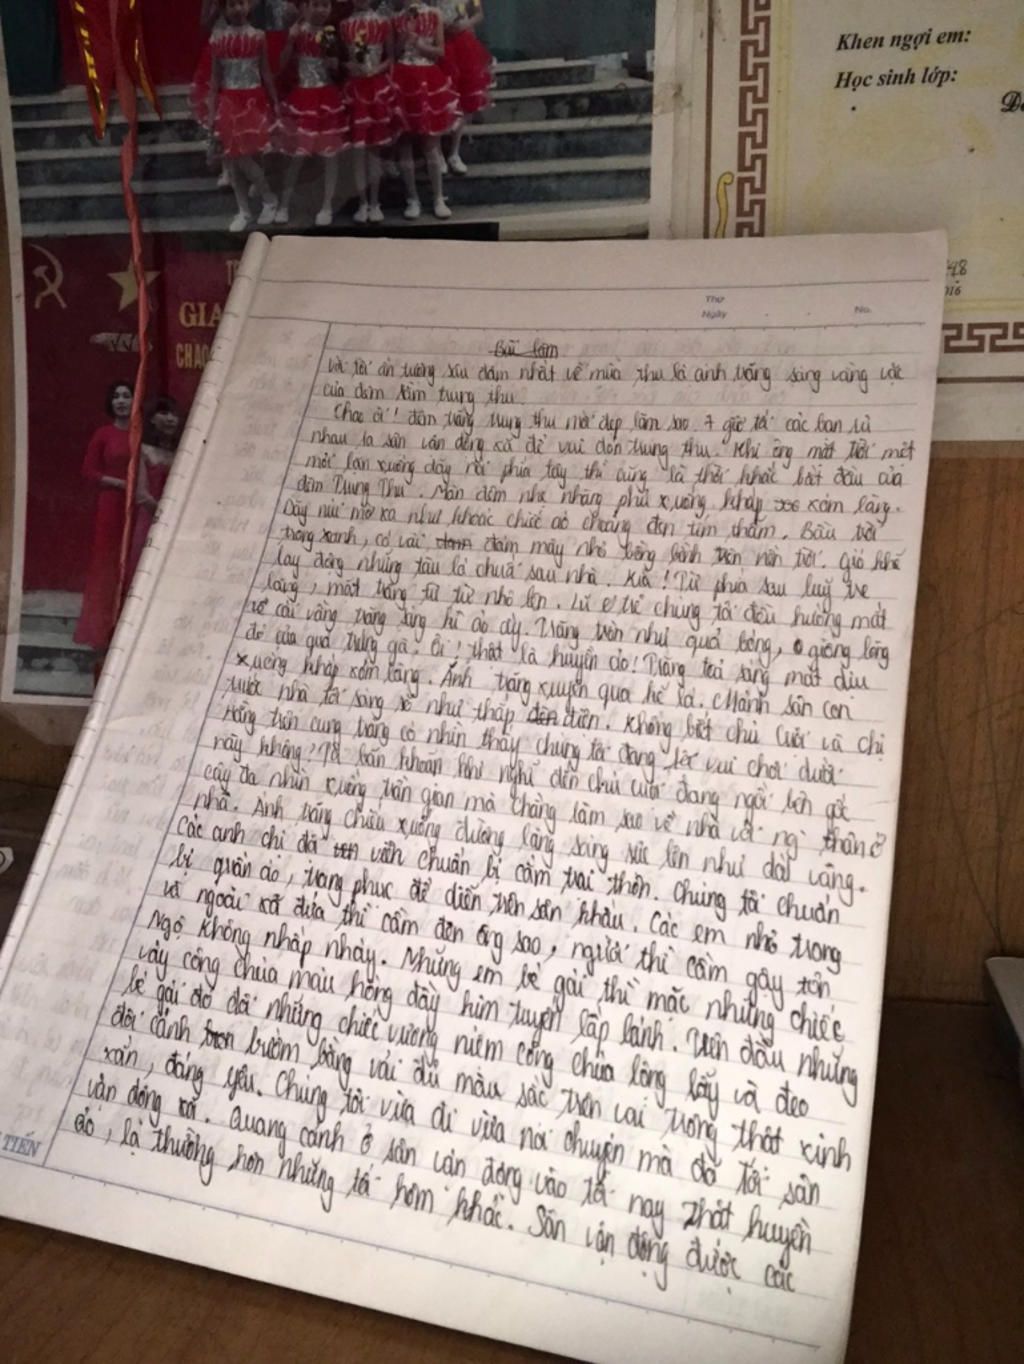 Khen ngợi em:
Học sinh lớp:
GIA
CHÀO
Thứ
Ngày
No.
Bài làm
Với tôi ấn tượng sâu đậm nhất về mùa thu là ánh trăng sáng vàng vặc
của đêm rằm trung thu.
Chao ôi! đêm trăng trung thu mới đẹp làm sao. 7 giờ tối các bạn rủ
nhau ra sân vận động xã để vui đón trung thu. Khi ông mặt trời mệt
mỏi lặn xuống dãy núi phía tây thì cũng là thời khắc bắt đầu của
đêm Trung Thu. Màn đêm nhẹ nhàng phủ xuống khắp xóm làng.
Dãy núi mờ xa như khoác chiếc áo choàng đen tím thẫm. Bầu trời
trong xanh, có vài đám mây nhỏ bồng bềnh trên nền trời. Gió khẽ
lay động những tàu lá chuối sau nhà. Kìa! Từ phía sau luỹ tre
làng, mặt trăng từ từ nhô lên. Lũ trẻ chúng tôi đều hướng mắt
về cái vầng trăng sáng kì ảo ấy. Trăng tròn như quả bóng, giống lòng
đỏ của quả trứng gà. Ôi! thật là huyền ảo! Trăng toả sáng mát dịu
xuống khắp xóm làng. Ánh trăng xuyên qua kẽ lá. Mảnh sân con
trước nhà tôi sáng rõ như thắp điện. Không biết chú Cuội và chị
Hằng trên cung trăng có nhìn thấy chúng tôi đang vui chơi dưới
này không? Tôi băn khoăn khi nghĩ đến chú cuội đang ngồi bên gốc
cây đa nhìn xuống trần gian mà chẳng làm sao về nhà với ng thân ở
nhà. Ánh trăng chiếu xuống đường làng sáng rực lên như dát vàng.
Các anh chị đã chuẩn bị cắm trại thôn. Chúng tôi chuẩn
bị quần áo, trang phục để diễn trên sân khấu. Các em nhỏ trong
và ngoài xã đứa thì cầm đèn ông sao, người thì cầm gậy tôn
ngộ không nhấp nháy. Những em bé gái thì mặc những chiếc
váy công chúa màu hồng đầy kim tuyến lấp lánh. Trên đầu những
bé gái đó đội những chiếc vương niệm công chúa lộng lẫy và đeo
đôi cánh bướm bằng vải đủ màu sắc trên vai trông thật xinh
xắn, đáng yêu. Chúng tôi vừa đi vừa nói chuyện mà đã tới sân
vận động xã. Quang cảnh ở sân vận động vào tối nay thật huyền
ảo, lạ thường hơn những tối hôm khác. Sân vận động được các
TIẾN